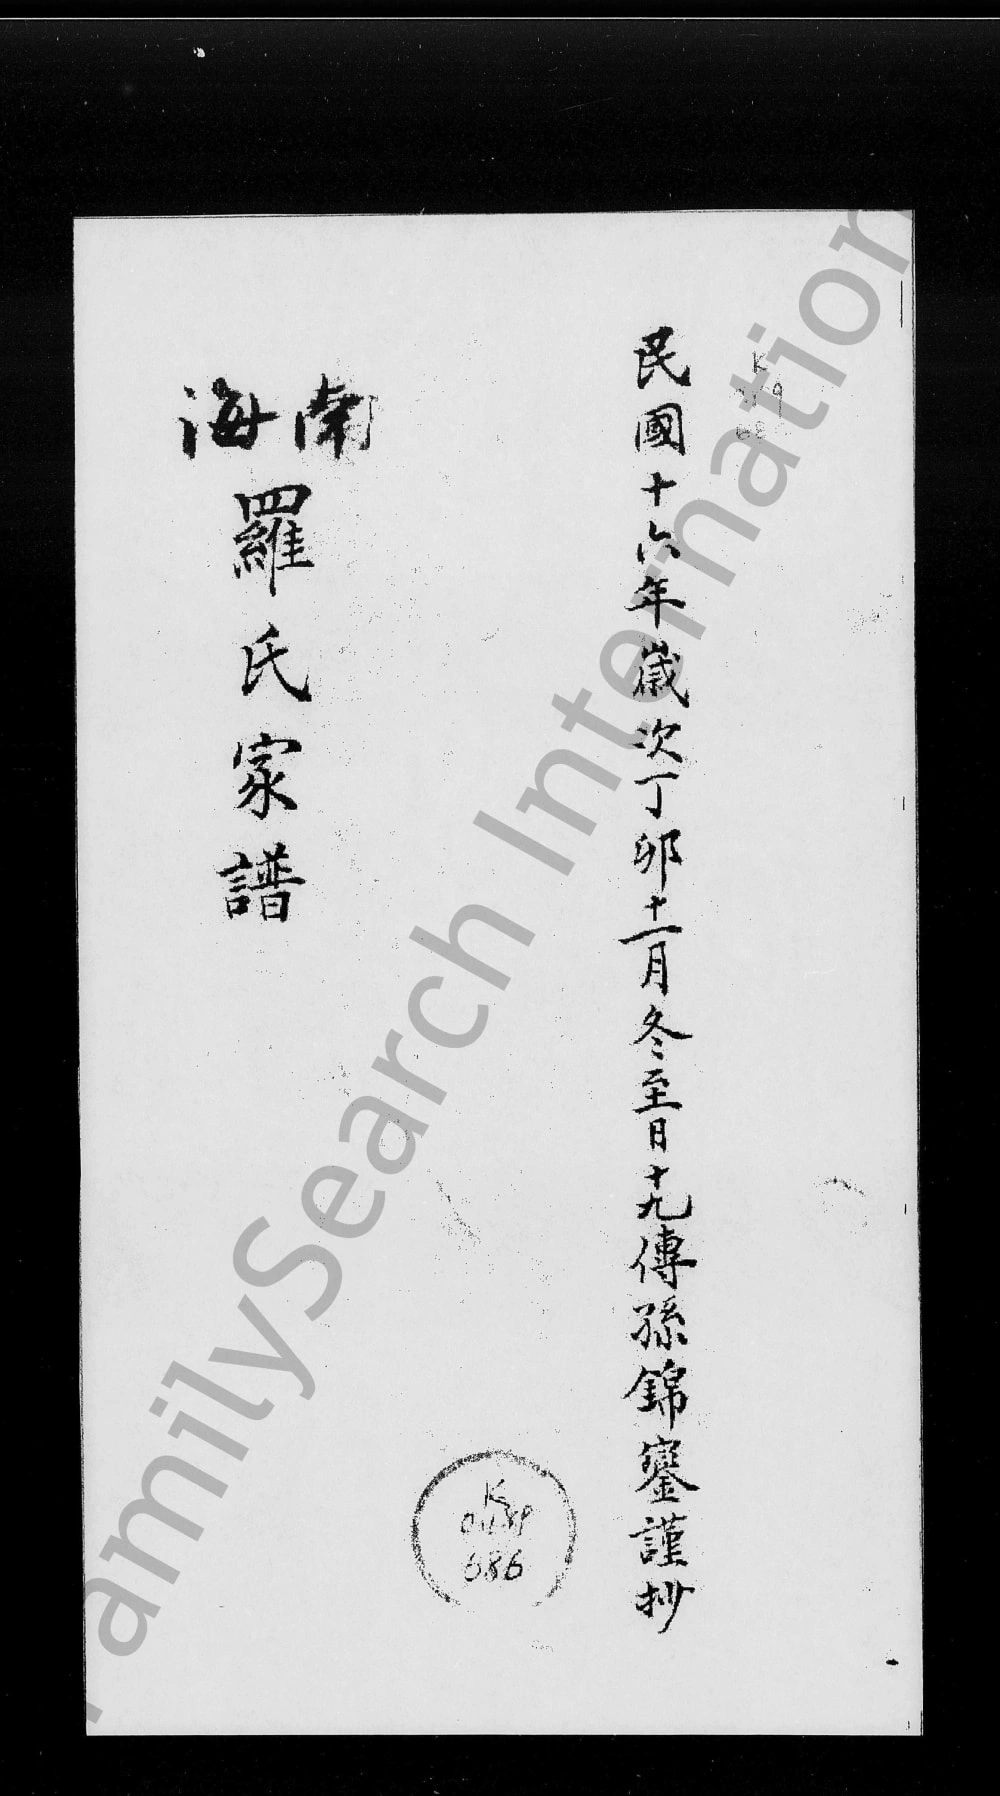 民國十六年歲次丁卯十一月冬至日十九傳孫錦鑾謹抄
南海
羅氏家譜
K
686
FamilySearch International